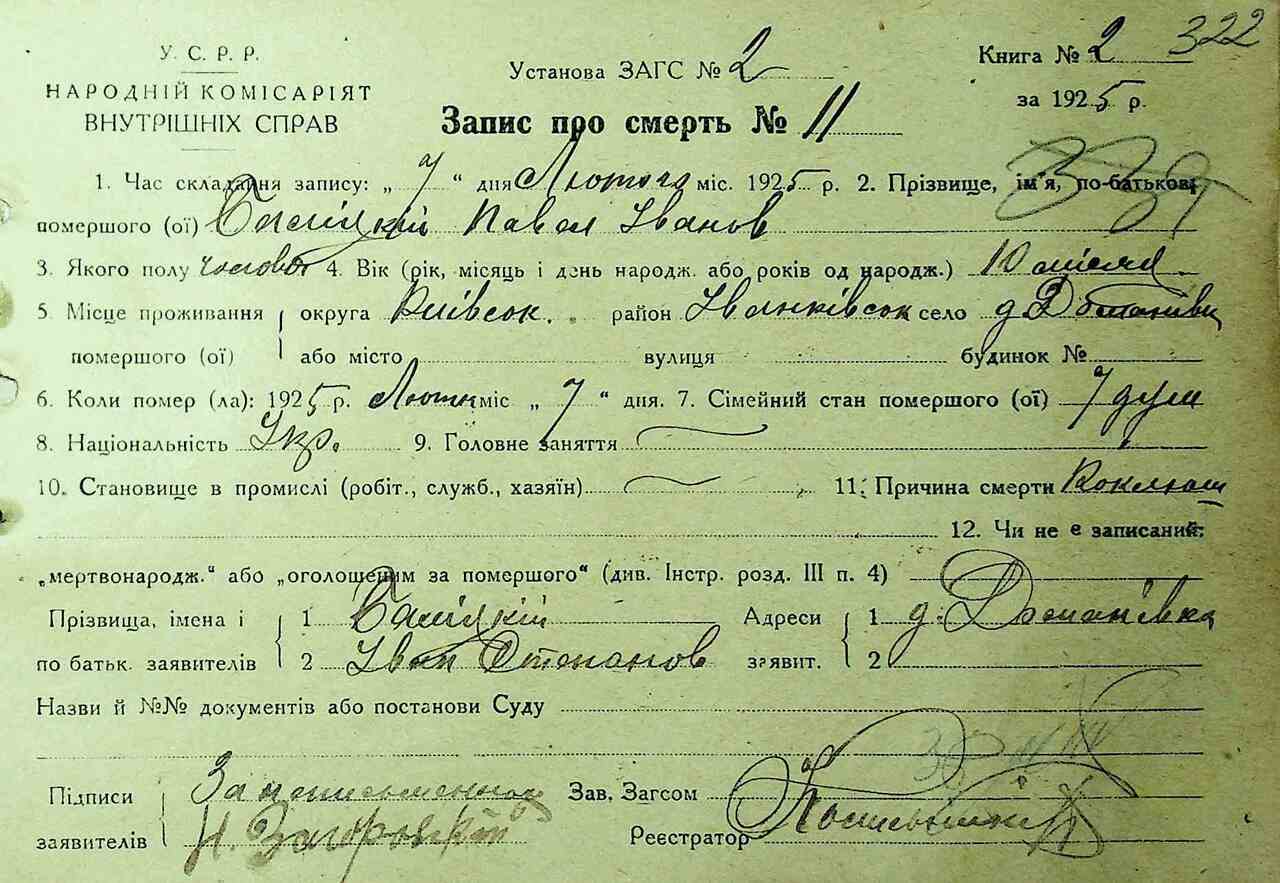 322
У. С. Р. Р.
НАРОДНІЙ КОМІСАРІЯТ
ВНУТРІШНІХ СПРАВ
Установа ЗАГС № 2
Книга № 2
за 1925 р.
Запис про смерть № 11
1. Час складання запису: „ 7 “ дня Лютого міс. 1925 р. 2. Прізвище, ім'я, по-батькові
помершого (ої) Баліцкій Павел Іванов
3. Якого полу 4. Вік (рік, місяць і день народж. або років од народж.) 10 місяц
5. Місце проживання округа Київськ. район Іванківськ село д.
помершого (ої) або місто вулиця будинок №
6. Коли помер (ла): 1925 р. міс „ 7 “ дня. 7. Сімейний стан помершого (ої) 7 душ
8. Національність Укр. 9. Головне заняття
10. Становище в промислі (робіт., служб., хазяїн) 11. Причина смерти Коклюш
12. Чи не є записаний:
„мертвонародж.“ або „оголошеним за помершого“ (див. Інстр. розд. III п. 4)
Прізвища, імена і 1 Баліцкій Адреси 1 д.
по батьк. заявителів 2 Іван Степанов заявит. 2
Назви й №№ документів або постанови Суду
Підписи За Зав. Загсом
заявителів Н. Загоровскій Реєстратор